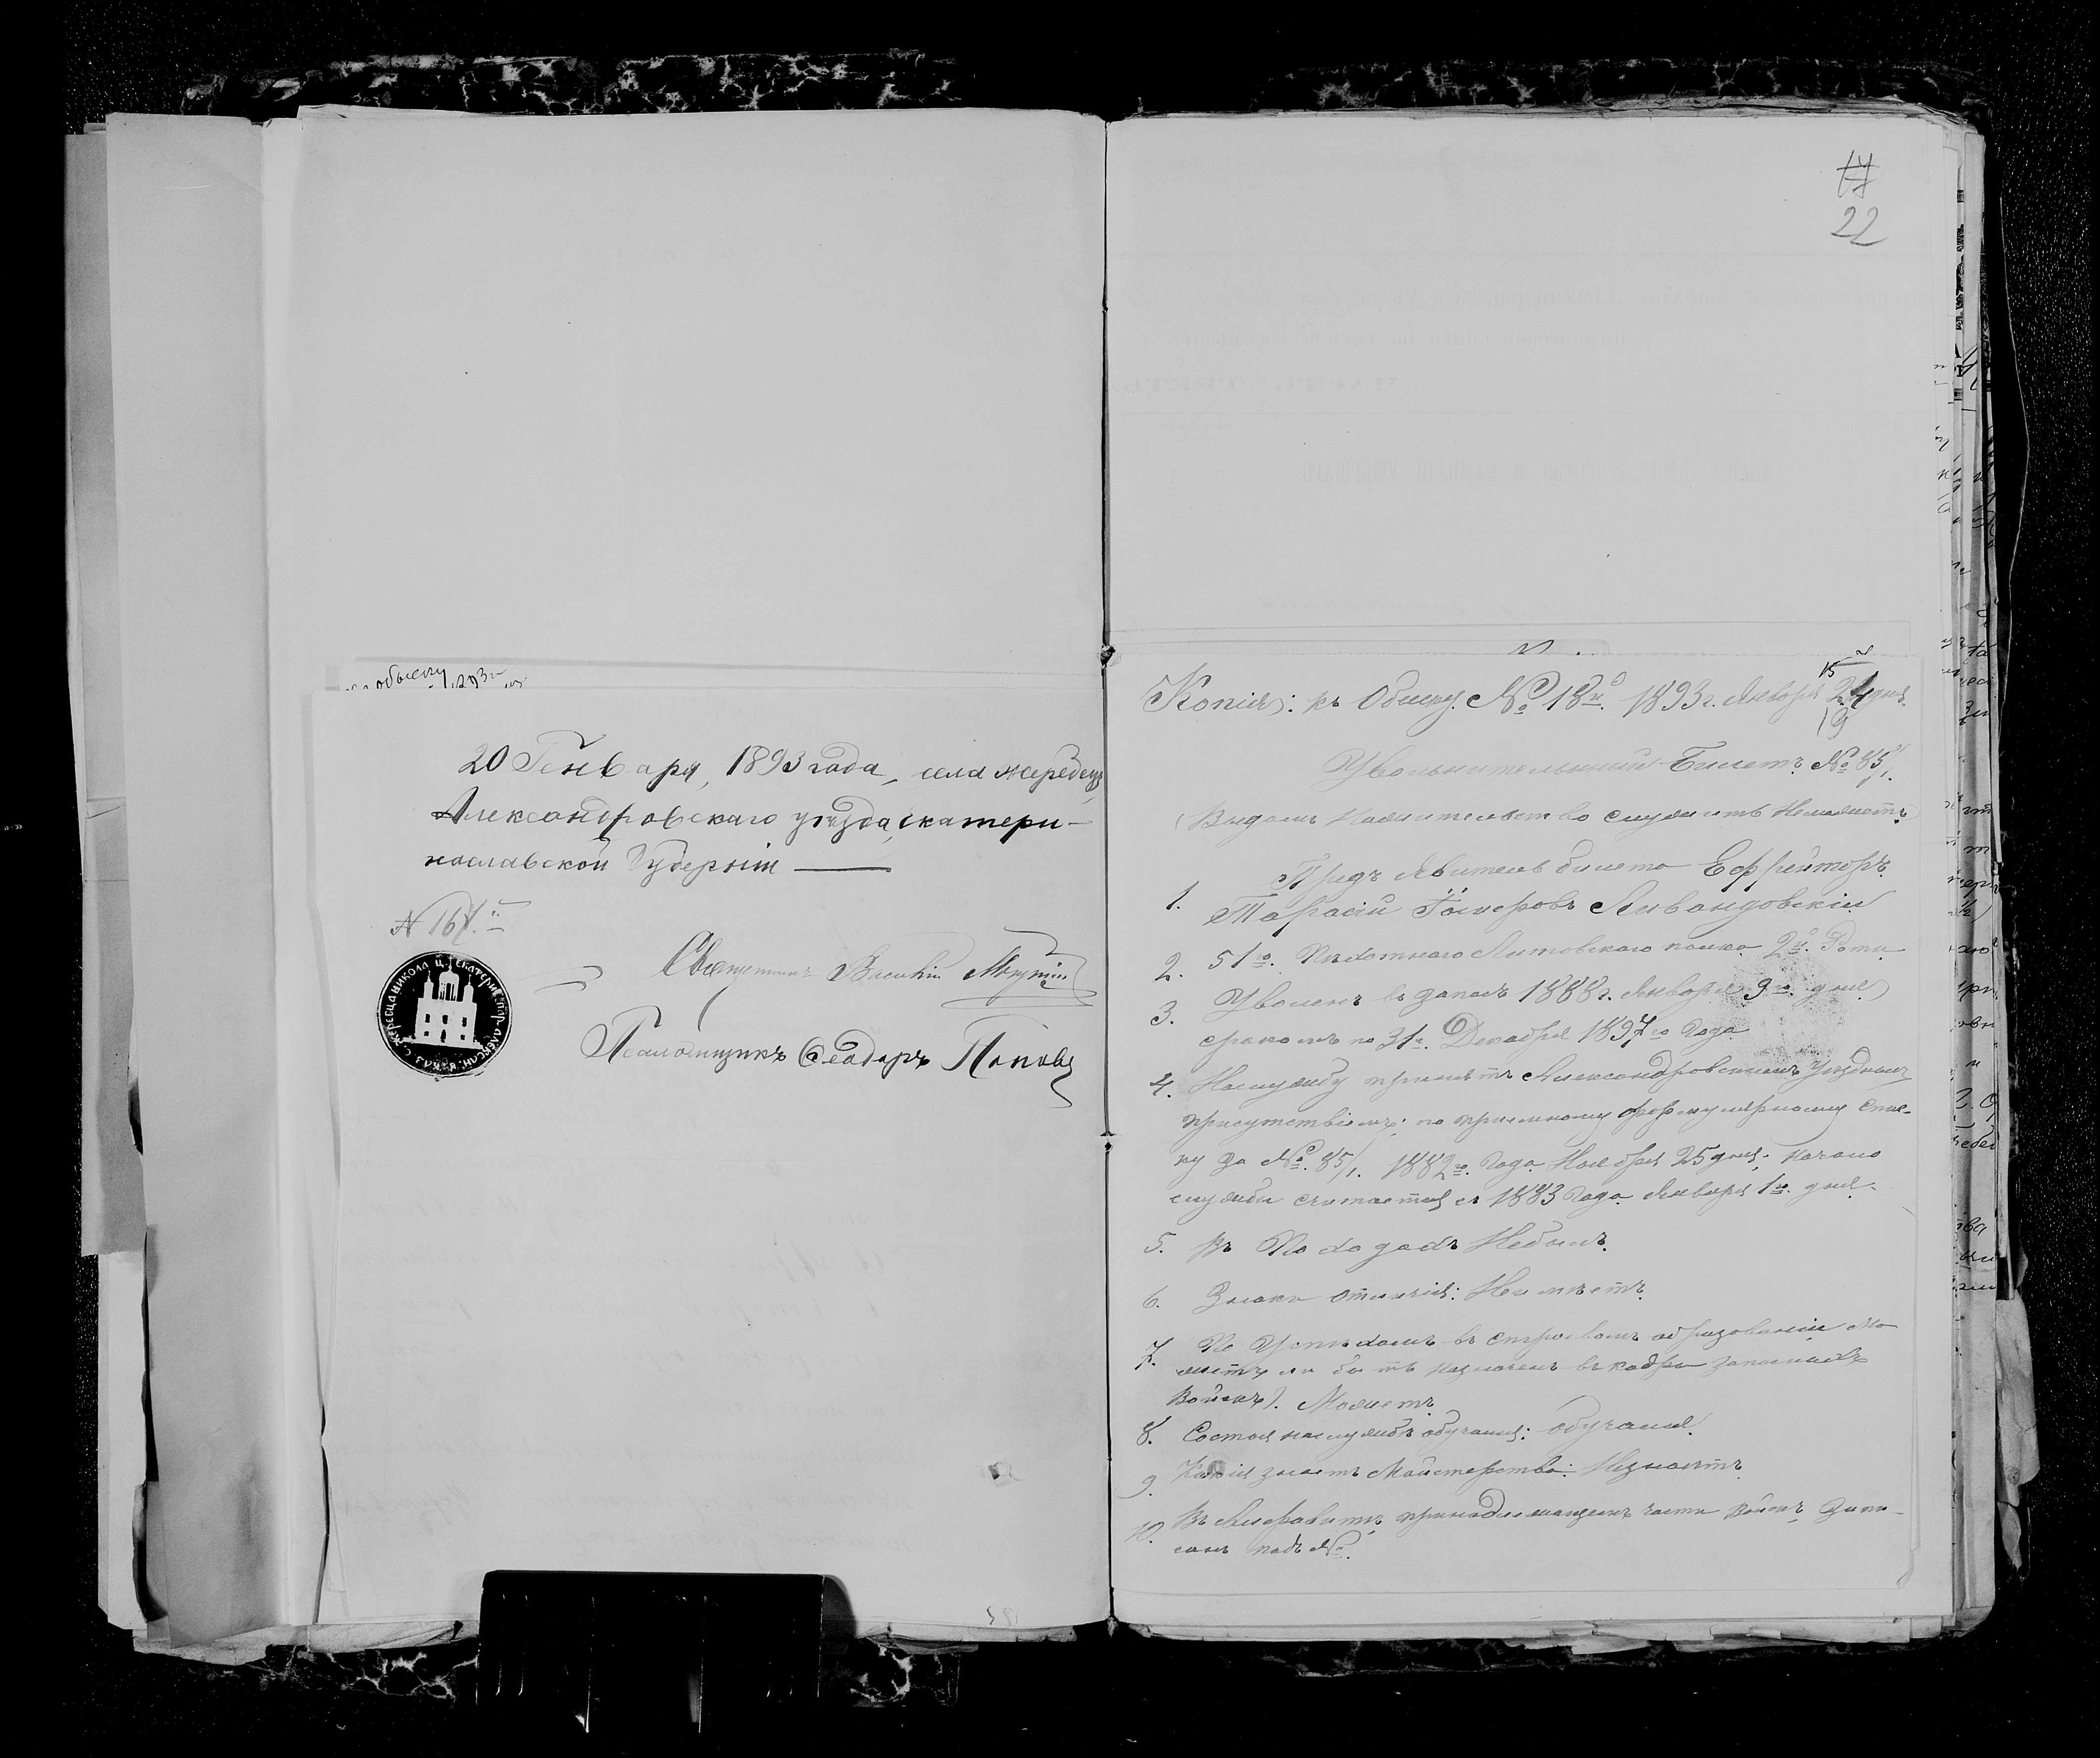 къ обыску
1893 г.
20 Генваря, 1893 года, села Жеребца,
Александровскаго уѣзда, Екатери-
нославской Губерніи
N 167.
Священникъ Василій
Псаломщикъ Ѳеодоръ Поповъ
17
22
Копія: къ Обыску № 18й 1893 г. Января 24 дня.
15
19
Увольнительный Билетъ № 85/1.
(Видомъ на жительство служить не можетъ)
1. Предъявитель билета Ефрейторъ
Тарасій
2. 51го Пѣхотнаго Литовскаго полка 2й Роты
3. Уволенъ въ запасъ 1888 г. Января 9го дня
срокомъ по 31е Декабря 1897го Года.
4. На службу принятъ Александровскимъ Уѣзднымъ
присутствіемъ; по приемному формулярному спис-
ку за № 85/1. 1882го Года Ноября 25 дня; начало
службы считается съ 1883 Года Января 1го дня.
5. Въ Походахъ Небылъ.
6. Знаки отличія: Неимѣетъ.
7. По Успѣхамъ въ строевомъ образованіи мо
жетъ ли быть назначенъ въ кадры запасныхъ
Войскъ). Можетъ.
8. Состоя на службѣ обучался: обучался.
9. Какія знаетъ Мастерства: Незнаетъ.
10. Въ Алфавитѣ, принадлежащемъ части Войскъ, Запи-
санъ подъ №.